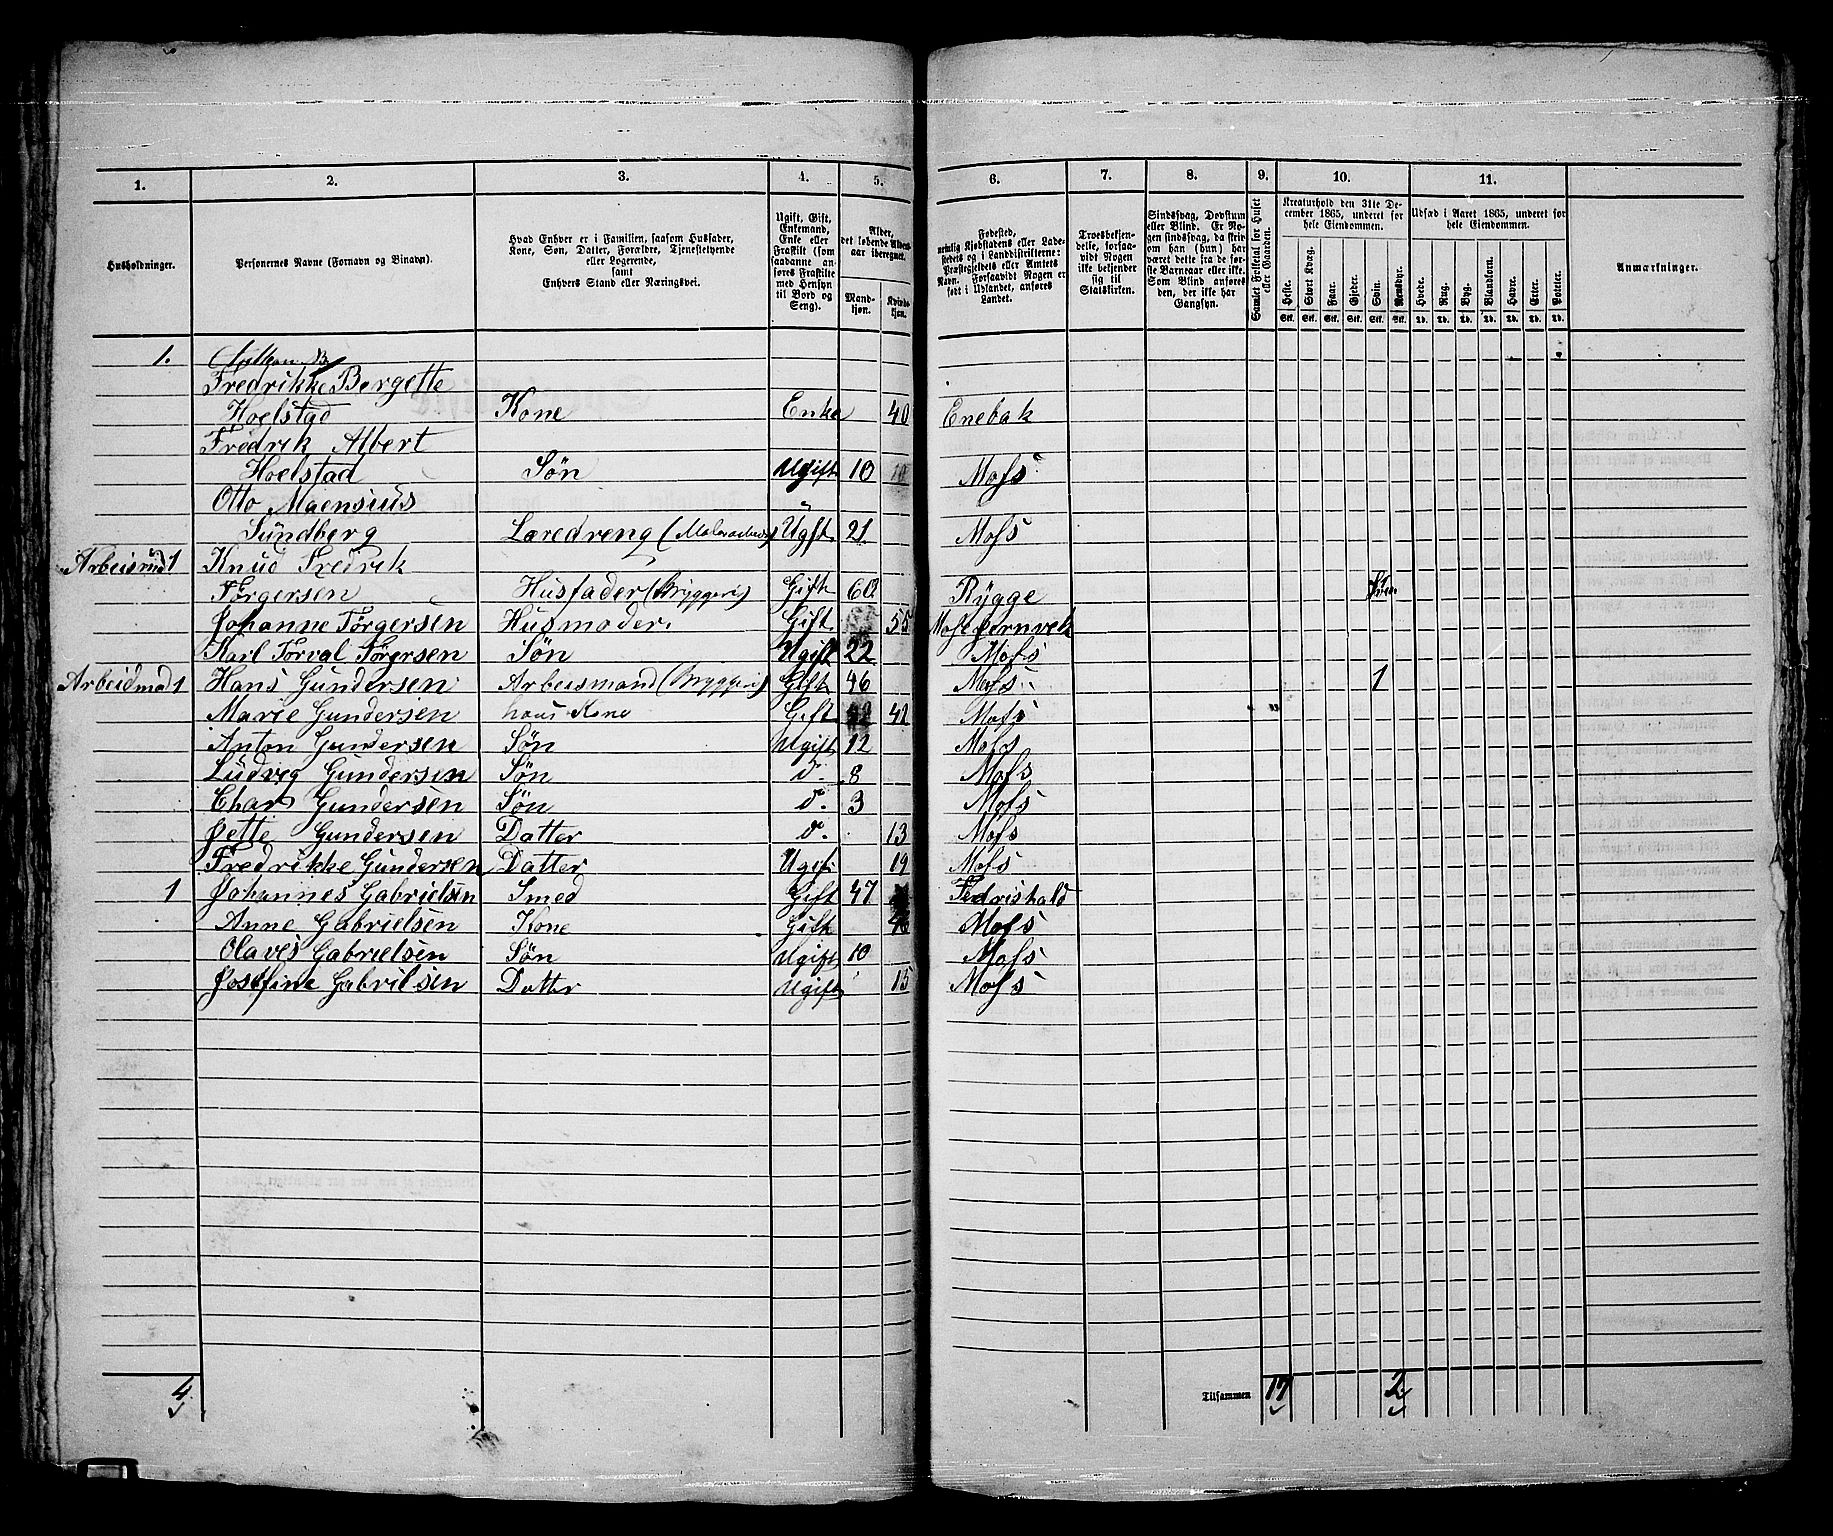 1. 2. 3. 4. 5. 6. 7. 8. 9. 10. 11.
Husholdninger.
Personernes Navne (Fornavn og Binavn).
Hvad Enhver er i Familien, saasom Husfader,
Kone, Søn, Datter, Forældre, Tjenestetyende
eller Logerende,
samt
Enhvers Stand eller Næringsvei.
Ugift, Gift,
Enkemand,
Enke eller
Fraskilt (som
saadanne an-
føres Fraskilte
med Hensyn
til Bord og
Seng).
Alder,
det løbende Alders-
aar iberegnet.
Mand-
kjøn.
Kvind-
kjøn.
Fødested,
nemlig Kjøbstadens eller Lade-
stedets og i Landdistrikterne:
Præstegjeldets eller Amtets
Navn. Forsaavidt Nogen er
født i Udlandet, anføres
Landet.
Troesbekjen-
delse, forsaa-
vidt Nogen
ikke bekjender
sig til
Statskirken.
Sindssvag, Døvstum
eller Blind. Er No-
gen sindssvag, da skriv
om han (hun) har
været dette fra de før-
ste Barneaar eller ikke.
Som Blind anføres
den, der ikke har
Gangsyn.
Samlet Folketal for Huset
eller Gaarden.
Kreaturhold den 31te De-
cember 1865, underet for
hele Eiendommen.
Heste. Stort Kvæg. Faar. Gjeder. Svin. Rensdyr.
Stk. Stk. Stk. Stk. Stk. Stk.
Udsæd i Aaret 1865, underet for
hele Eiendommen.
Hvede. Rug. Byg. Blandkorn. Havre. Erter. Poteter.
Td. Td. Td. Td. Td. Td. Td.
Anmærkninger.
1.
Fredrikke Bergette
Hoelstad Kone Enke 40 Enebak
Fredrik Albert
Hoelstad Søn Ugift 10 Mofs
Otto Maensius
Sündberg Læredreng ( Ugft 21 Mofs
Knud Fredrik
Tørgersen Husfader (Bryggeri) Gift 60 Rygge
Johanne Tørgersen Husmoder. Gift 55
Karl Torval Tørgersen Søn Ugift 22 Mofs
Arbeidmad 1 Hans Gundersen Arbeismand (Bryggeri) Gift 46 Mofs 1
Marie Gundersen hans Kone Gift 42 Mofs
Anton Gundersen Søn Ugift 12 Mofs
Ludvig Gundersen Søn d. 8 Mofs
Chars Gundersen Søn d. 3 Mofs
Jette Gundersen Datter d. 13 Mofs
Fredrikke Gundersen Datter Ugift 19 Mofs
1 Johannes Gabrielsen Smed Gift 47 Fedrishald
Anne Gabrielsen Kone Gift Mofs
Olaves Gabrielsen Søn Ugift 10 Mofs
Josefine Gabrilsen Datter Ugift 15 Mofs
4 Tilsammen 17 2